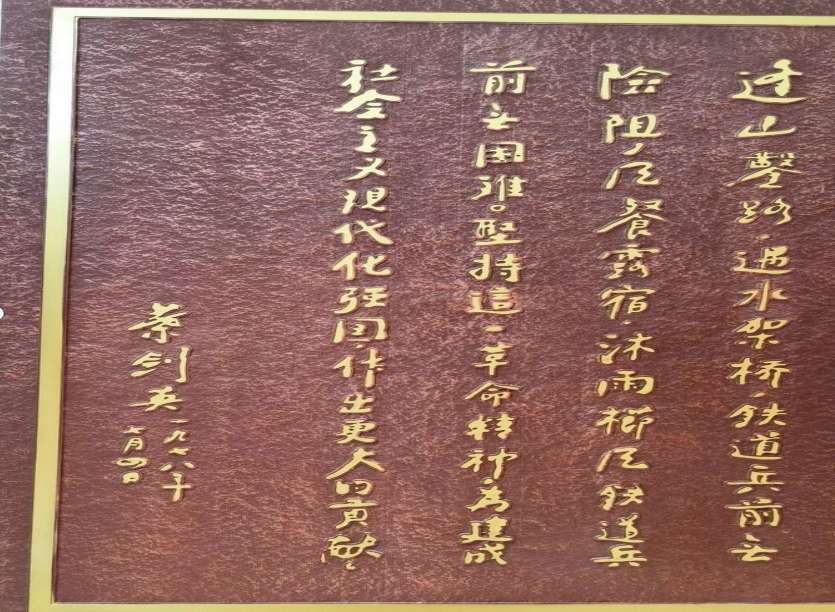 逢山鑿路，遇水架桥，鉄道兵前无
險阻，风餐露宿，沐雨櫛风，鉄道兵
前无困难。堅持這一革命精神，为建成
社会主义现代化强国，作出更大的贡献
葉剑英一九七八年
七月四日